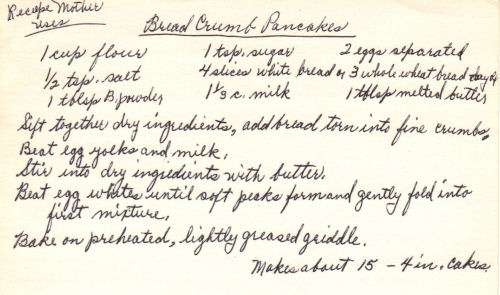 Recipe Mother
uses
Bread Crumb Pancakes
1 cup flour 1 tsp. sugar 2 eggs separated
1/2 tsp. salt 4 slices white bread or 3 whole wheat bread day old
1 tblsp B. powder 1 1/3 c. milk 1 tblsp melted butter
Sift together dry ingredients, add bread torn into fine crumbs,
Beat egg yolks and milk.
Stir into dry ingredients with butter.
Beat egg whites until soft peaks form and gently fold into
first mixture.
Bake on preheated, lightly greased griddle.
Makes about 15 - 4 in. cakes.